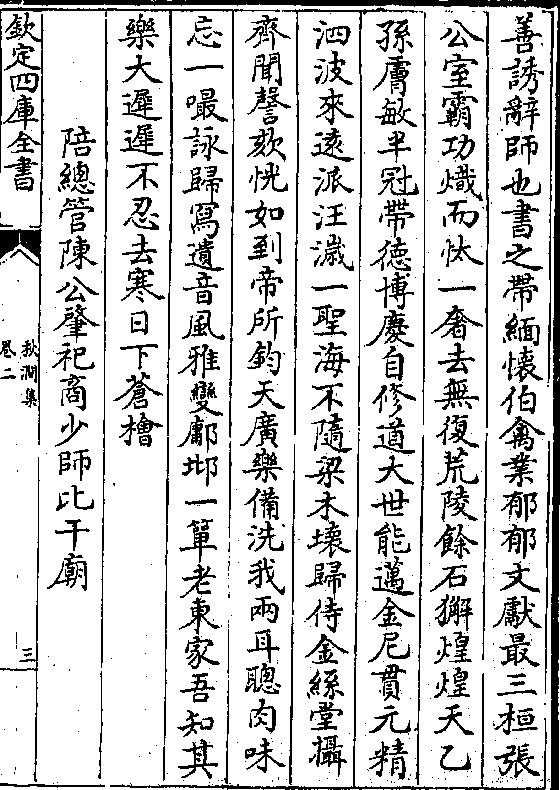 善誘辭師也書之帶緬懷伯禽業郁郁文獻最三桓張
公室霸功熾而忲一奢去無復荒陵餘石獬煌煌天乙
孫膚敏半冠帶德博慶自修道大世能邁金尼貫元精
泗波來遠派汪濊一聖海不隨梁木壞歸侍金絲堂攝
齊聞謦欬恍如到帝所鈞天廣樂備洗我兩耳聰肉味
忘一嘬詠歸寫遺音風雅變鄘邶一簞老東家吾知其
樂大遲遲不忍去寒日下蒼檜
陪總管陳公肇祀商少師比干廟
欽定四庫全書
秋澗集
卷二
三